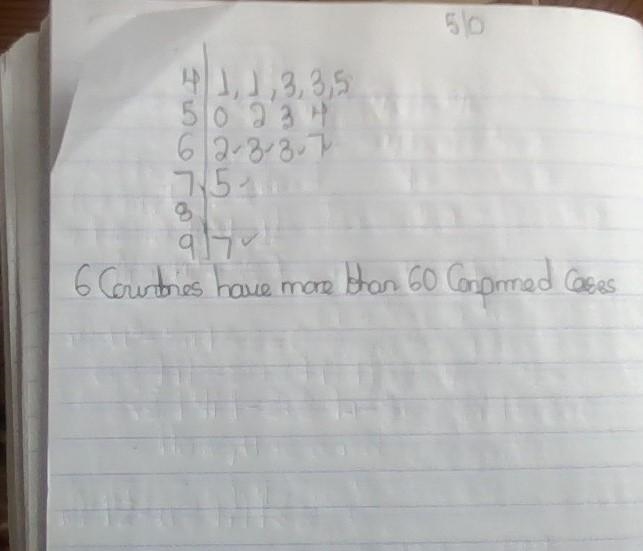 5|0
4 | 1, 1, 3, 3, 5
5 | 0 2 3 4
6 | 2 3 3 7
7 | 5
8 |
9 | 7
6 Countries have more than 60 Conprmed Cases